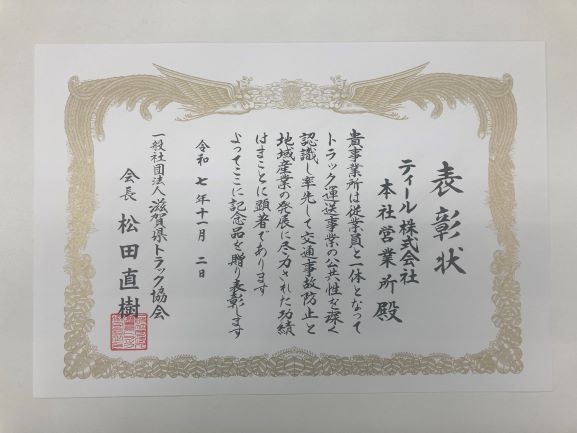 表彰状
ティール株式会社
本社営業所 殿
貴事業所は従業員と一体となって
トラック運送事業の公共性を深く
認識し率先して交通事故防止と
地域産業の発展に尽力された功績
はまことに顕著であります
よってここに記念品を贈り表彰します
令和七年十一月二日
一般社団法人滋賀県トラック協会
会長 松田直樹